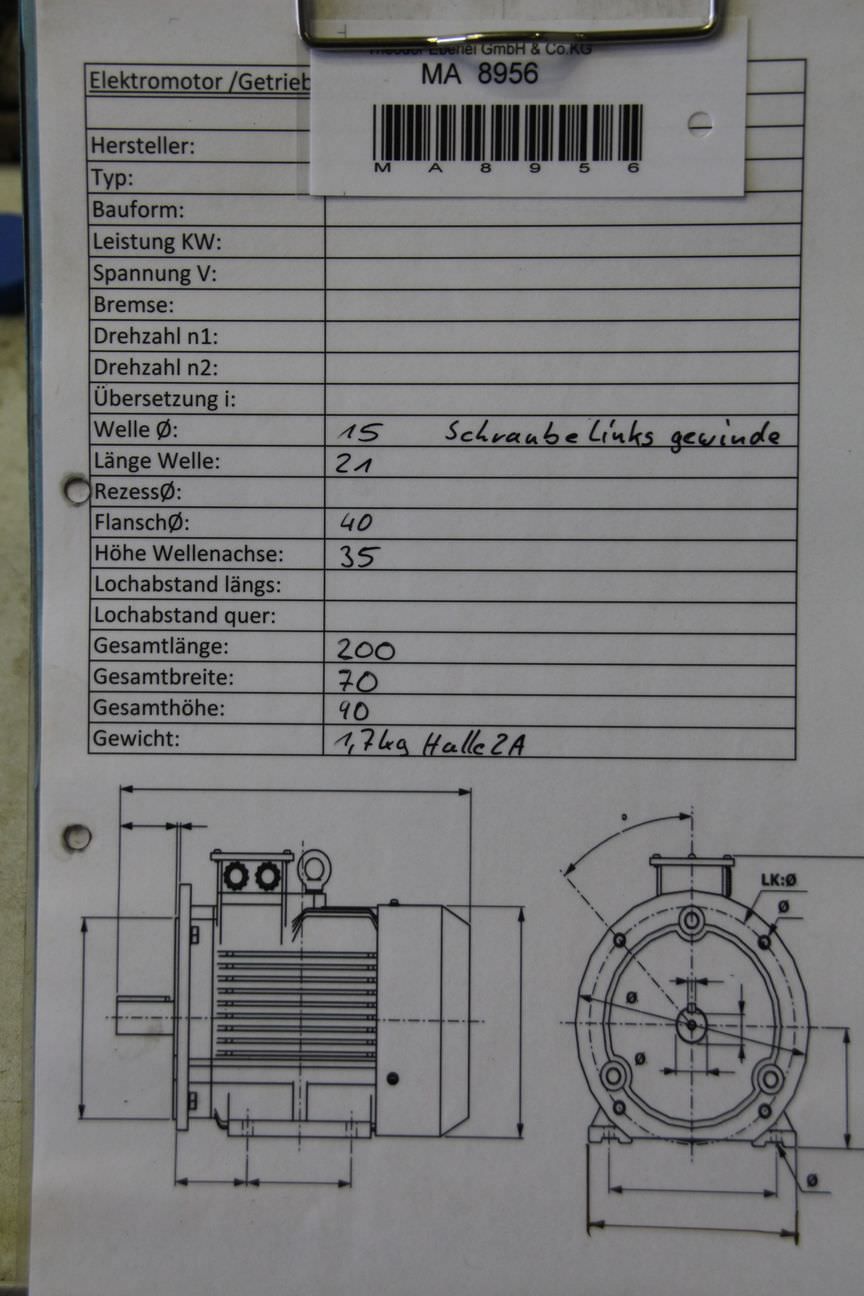 Theodor Eberlei GmbH & Co.KG
MA 8956
M A 8 9 5 6
Elektromotor /Getrieb
Hersteller:
Typ:
Bauform:
Leistung KW:
Spannung V:
Bremse:
Drehzahl n1:
Drehzahl n2:
Übersetzung i:
Welle Ø: 15 Schraube Links gewinde
Länge Welle: 21
RezessØ:
FlanschØ: 40
Höhe Wellenachse: 35
Lochabstand längs:
Lochabstand quer:
Gesamtlänge: 200
Gesamtbreite: 70
Gesamthöhe: 90
Gewicht: 1,7kg Halle 2A
°
LK:Ø
Ø
Ø
Ø
Ø